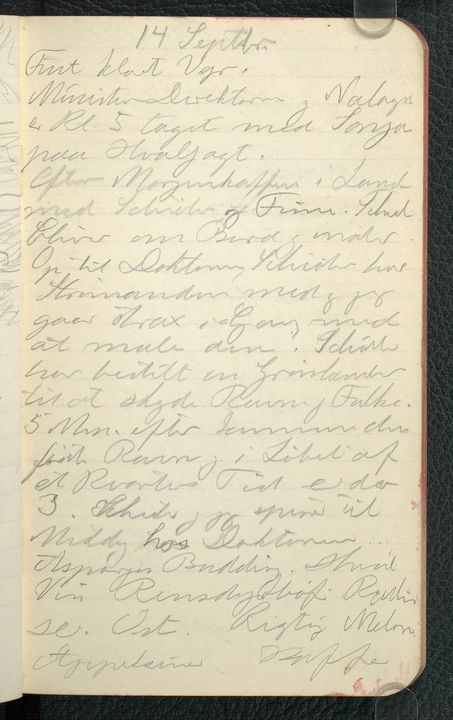 14 Septbr.
Fint klart Vejr.
Ministeren Direktøren og
er Kl. 5 taget med Sonja
paa Hvalfagt.
Efter Morgenkaffen i Land
med Schiøler og Finn.
bliver om Bord og maler.
Op til Doktoren, Schiøler har
med og jeg
gaar strax i Gang med
at male den. Schiøler
har bestilt en Grønlænder
til at skyde Ravn og Falke.
5 Min. efter kommer den
første Ravn og i Løbet af
et Kvarters Tid er der
3. Schiøler og jeg spiser til
Middag hos Doktoren ...
Asparges Budding.
Vin Rensdyrbøf.
se. Ost. Rigtig Melon
Appelsiner Kaffe